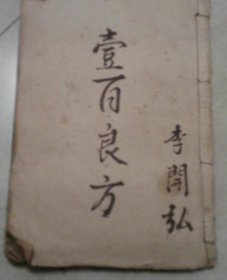 壹百良方
李開弘